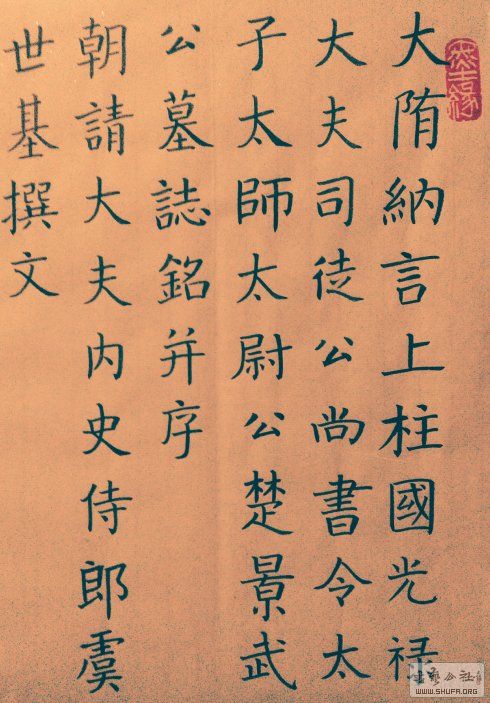 大隋納言上柱國光禄
大夫司徒公尚書令太
子太師太尉公楚景武
公墓誌銘并序
朝請大夫内史侍郎虞
世基撰文
WWW.SHUFA.ORG